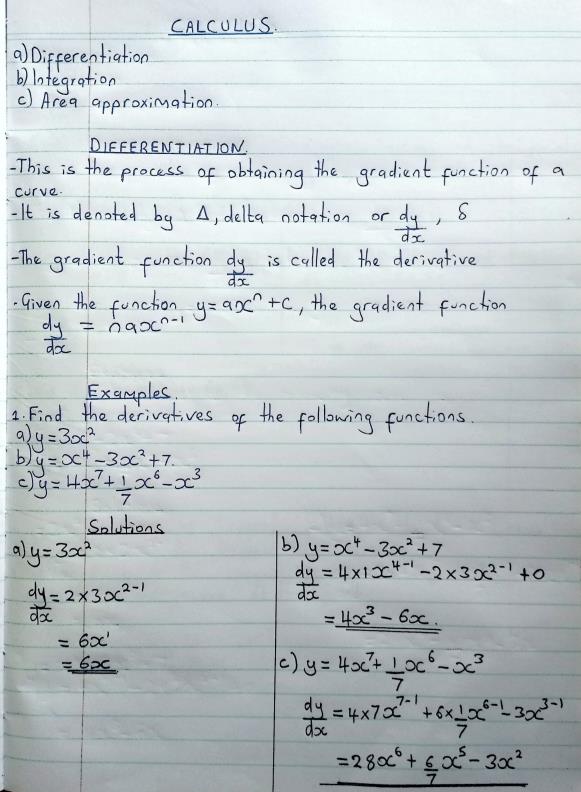 CALCULUS.
a) Differentiation
b) Integration
c) Area approximation.
DIFFERENTIATION.
-This is the process of obtaining the gradient function of a
curve.
-It is denoted by Δ, delta notation or dy/dx, δ
-The gradient function dy/dx is called the derivative
-Given the function y=axⁿ+c, the gradient function
dy/dx = naxⁿ⁻¹
Examples.
1. Find the derivatives of the following functions.
a) y=3x²
b) y=x⁴-3x²+7.
c) y=4x⁷+1/7x⁶-x³
Solutions
a) y=3x²
dy/dx=2×3x²⁻¹
= 6x¹
= 6x
b) y=x⁴-3x²+7
dy/dx=4×1x⁴⁻¹-2×3x²⁻¹+0
= 4x³-6x.
c) y=4x⁷+1/7x⁶-x³
dy/dx=4×7x⁷⁻¹+6×1/7x⁶⁻¹-3x³⁻¹
=28x⁶+6/7x⁵-3x²